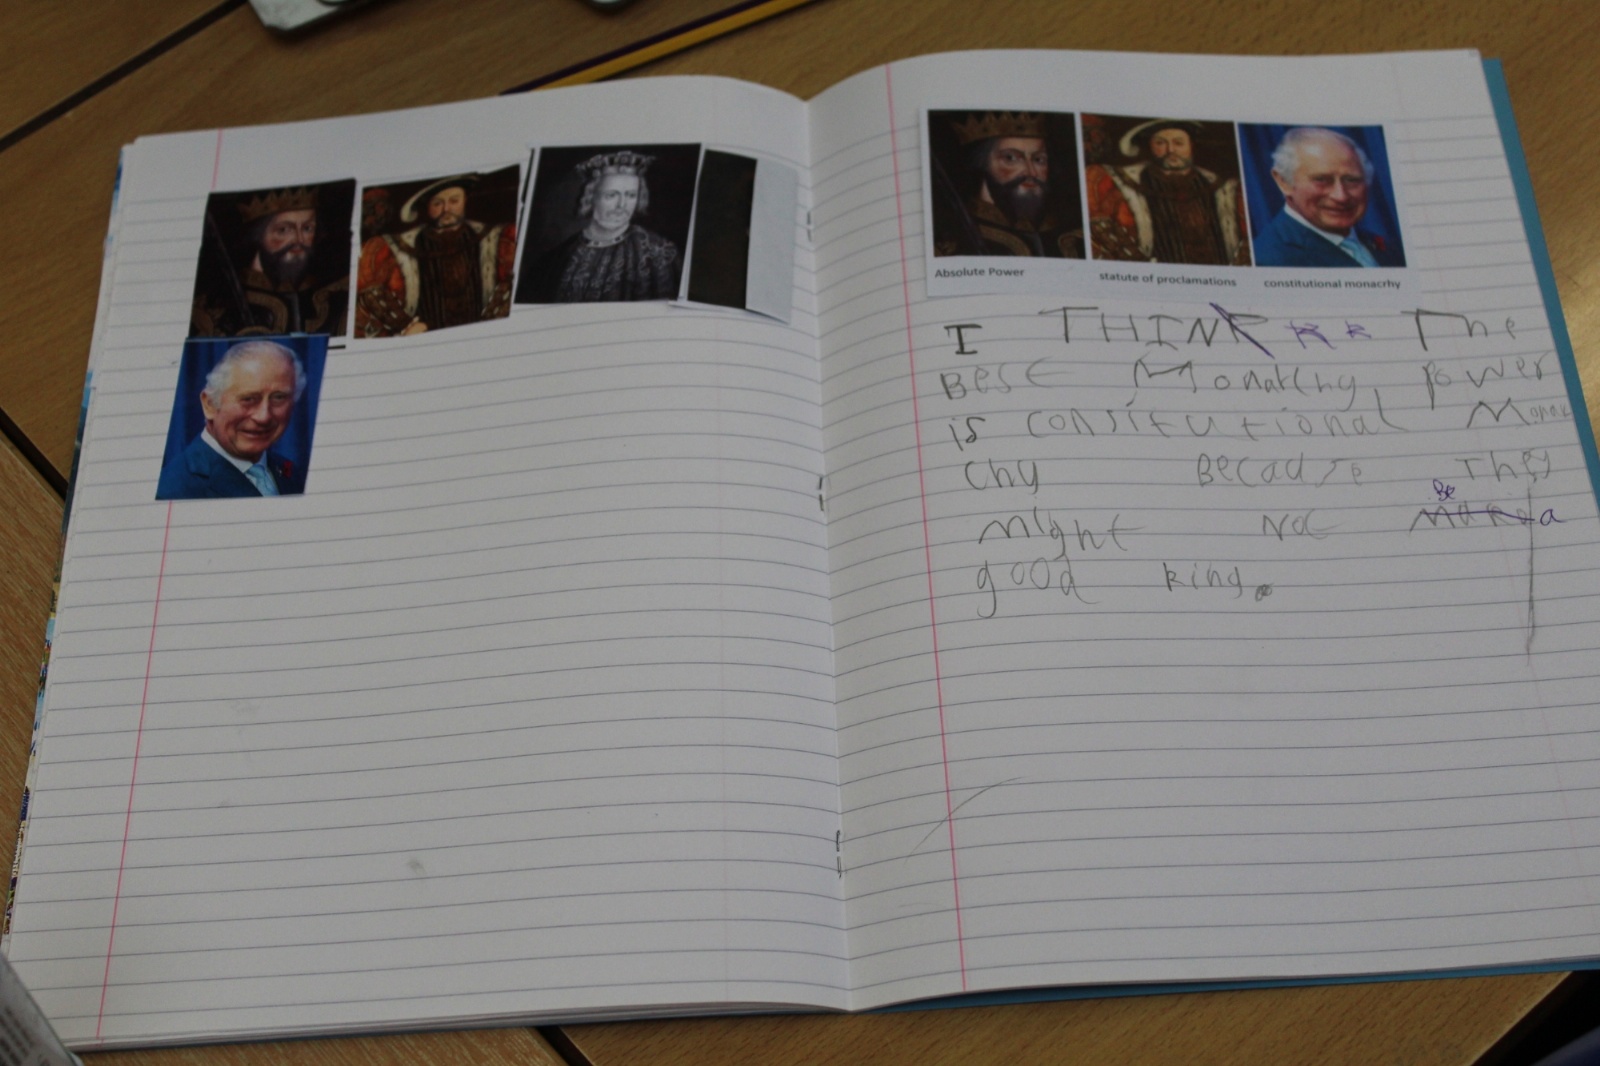 Absolute Power
statute of proclamations
constitutional monacrhy
I THINK The
Best Monarchy power
is consitutional Monar
chy Because They
might Not Be a
good king.